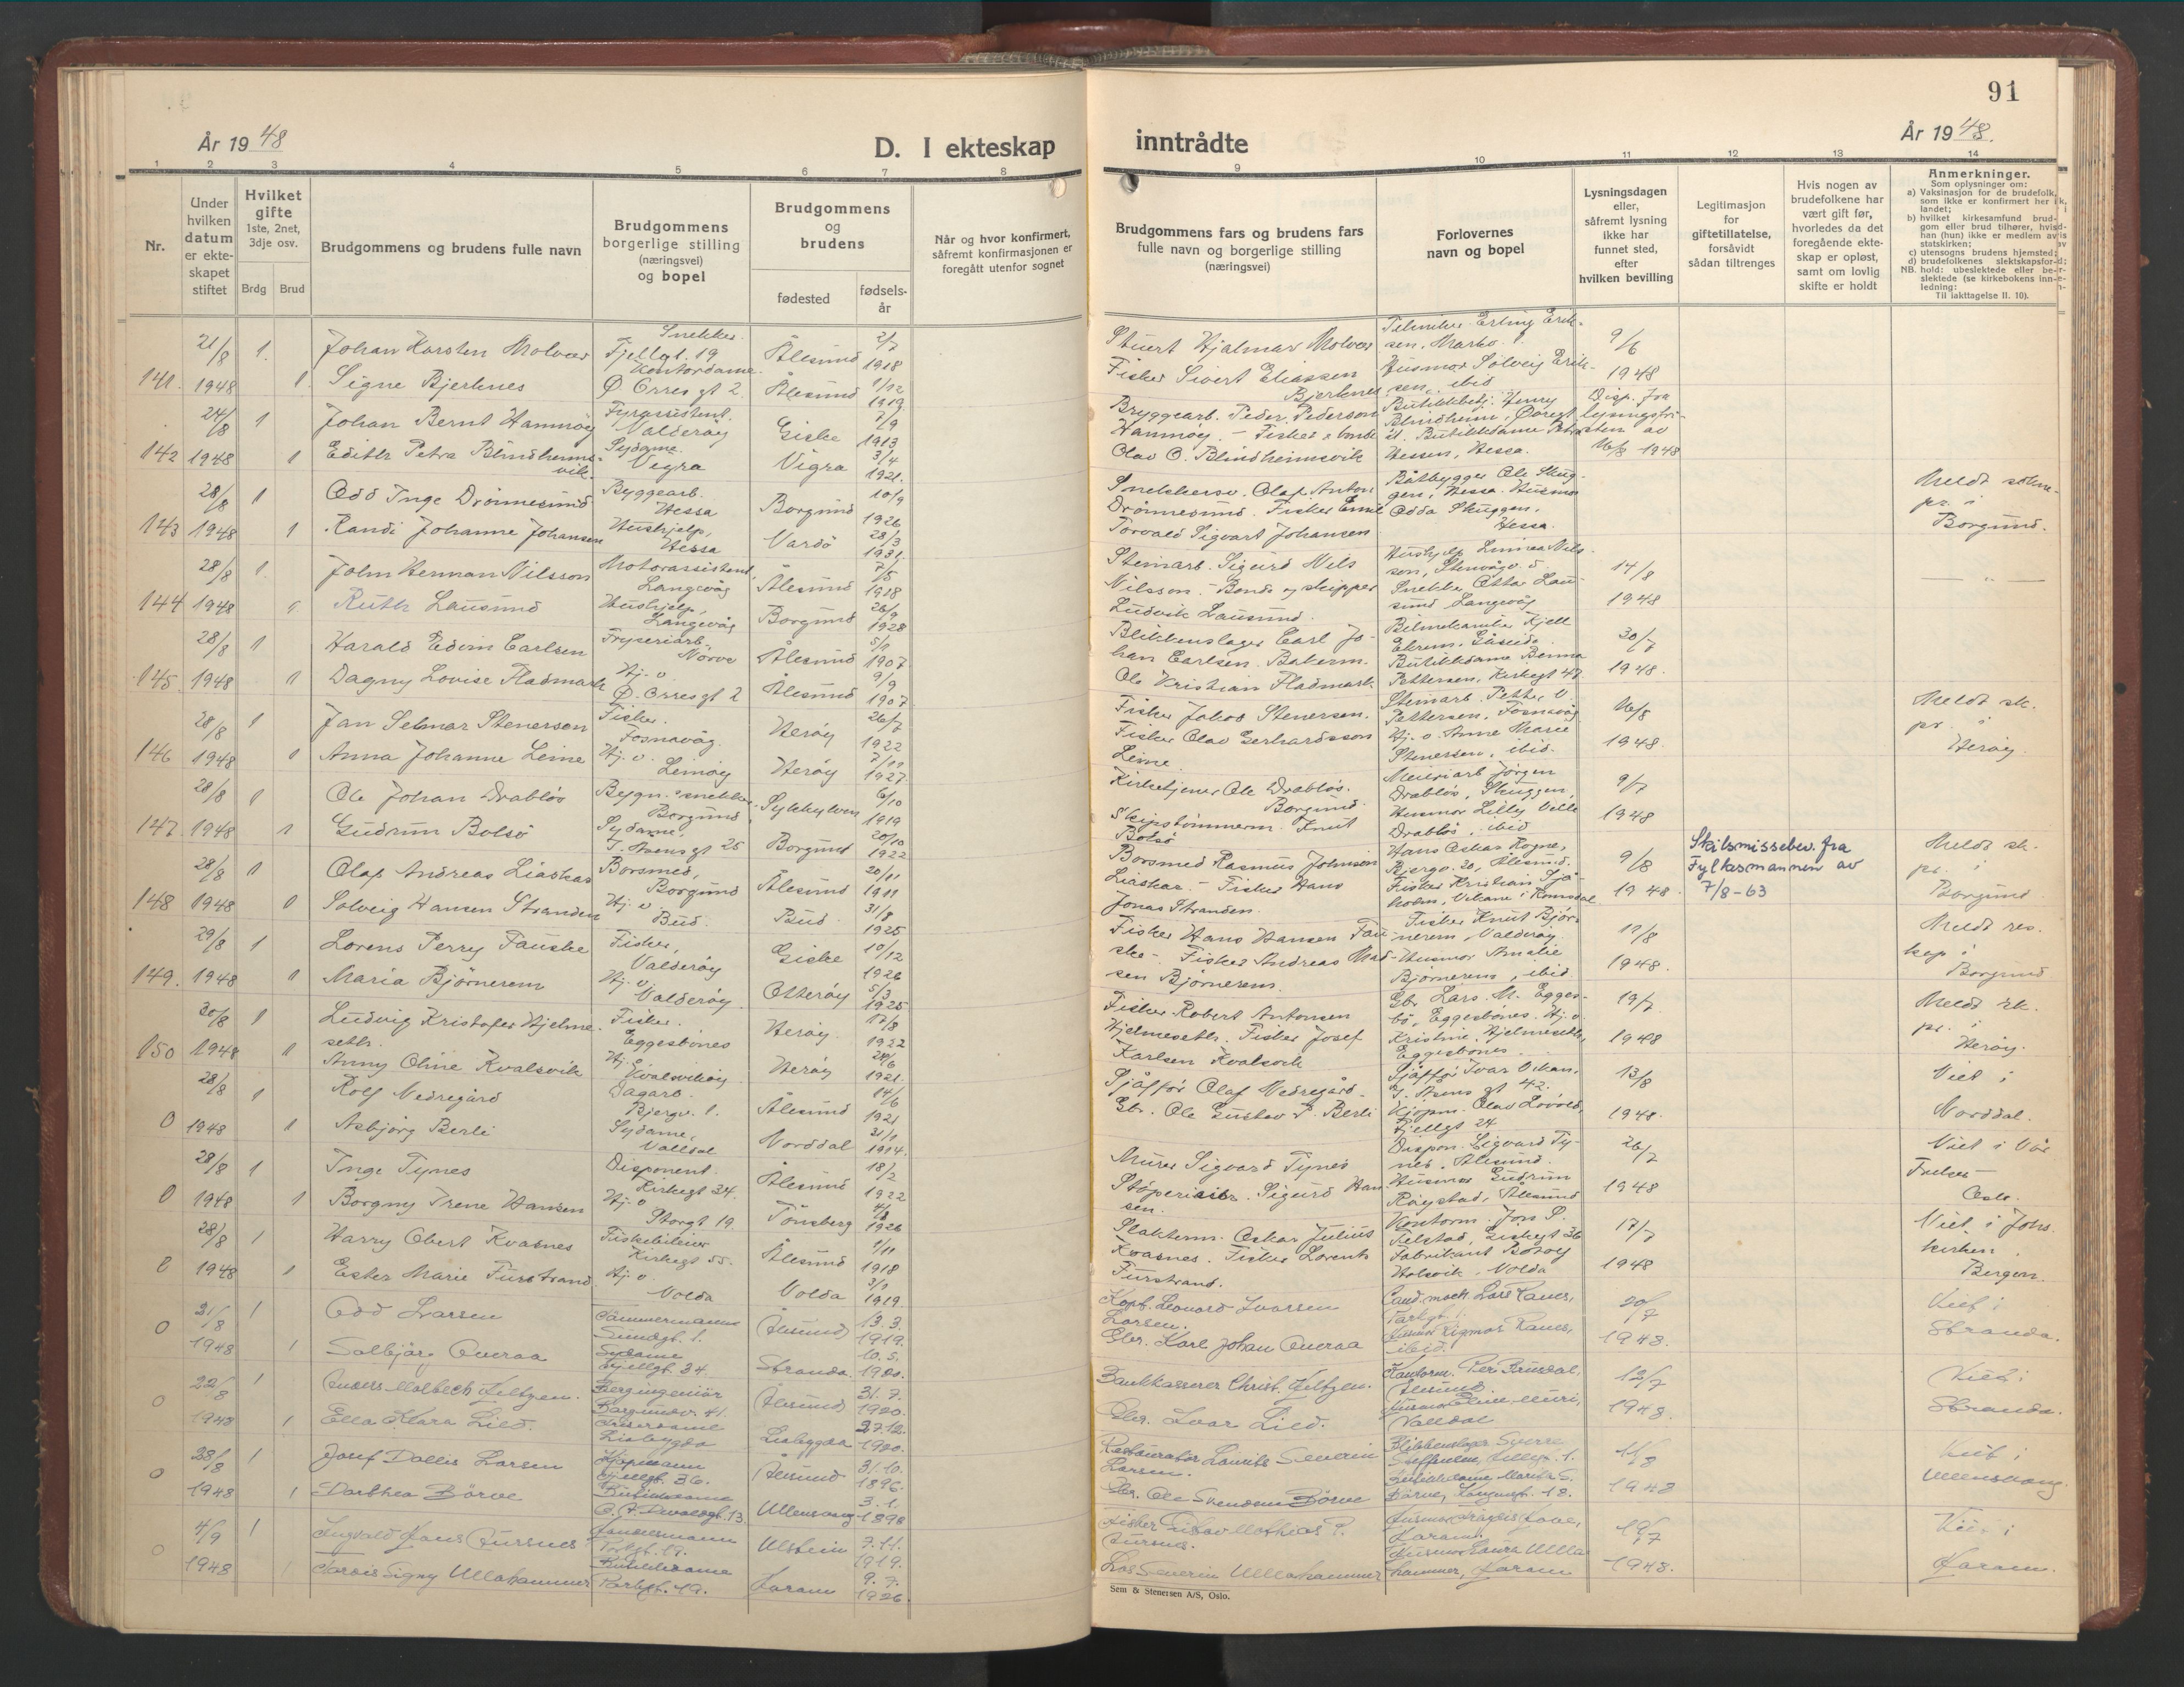 91
År 1948
D. I ekteskap inntrådte
År 1948.
1 2 3 4 5 6 7 8 9 10 11 12 13 14
Nr.
Under hvilken datum er ekteskapet stiftet
Hvilket gifte
1ste, 2net, 3dje osv.
Brdg Brud
Brudgommens og brudens fulle navn
Brudgommens borgerlige stilling (næringsvei) og bopel
Brudgommens og brudens
fødested
fødselsår
Når og hvor konfirmert, såfremt konfirmasjonen er foregått utenfor sognet
Brudgommens fars og brudens fars fulle navn og borgerlige stilling (næringsvei)
Forlovernes navn og bopel
Lysningsdagen eller, såfremt lysning ikke har funnet sted, efter hvilken bevilling
Legitimasjon for giftetillatelse, forsåvidt sådan tiltrenges
Hvis nogen av brudefolkene har vært gift før, hvorledes da det foregående ekteskap er opløst, samt om lovlig skifte er holdt
Anmerkninger.
Som oplysninger om:
a) Vaksinasjon for de brudefolk, som ikke er konfirmert her i landet;
b) hvilket kirkesamfund brudgom eller brud tilhører, hvis han (hun) ikke er medlem av statskirken;
c) utensogns brudens hjemsted;
d) brudefolkenes slektskapsforhold: ubeslektede eller beslektede (se kirkebokens innledning:
NB.
Til iakttagelse II. 10).
141. 21/8 1948 1 Johan Karsten Molvær Snekker. Fjellgt. 19 Ålesund 2/7 1918
1 Signe Bjerknes Kontordame. Ø. Orresgt 2 Ålesund 1/12 1919
Stuert Hjalmar Molvær
Fisker Sivert Eliassen Bjerknes
Erling Eriksen,
Husmor Solveig Eriksen, ibid
9/6 1948
142 24/8 1948 1 Johan Bernt Hamnøy Fyrassistent. Valderøy Giske 7/9 1913
1 Edith Petra Blindheimsvik. Sydame. Vigra Vigra 3/4 1921.
Bryggearb. Peder Pederson Hamnøy. - Fisker
Olav O. Blindheimsvik
Butikkbetj. Henry Blindheim,
Butikkdame Petra Hessen, Hessa.
Disp. fra lysningsfristen av 16/8 1948
143 28/8 1948 1 Odd Inge Drønnesund Byggearb. Hessa Borgund 10/9 1926
1 Randi Johanne Johansen Hushjelp, Hessa Vardö 28/3 1931.
Snekkersv. Olaf Anton Drønnesund. Fisker Emil Torvald Sigvart Johansen
Båtbygger Ole Skuggen, Hessa. Husmor Odda Skuggen, Hessa.
Meldt sokne-
pr. i
Borgund.
144 28/8 1948 1 John Herman Nilsson Motorassistent, Langevåg Ålesund 7/5 1918
1 Ruth Lausund Hushjelp, Langevåg Borgund 28/9 1928
Steinarb. Sigurd Nils Nilsson. Bonde og skipper Ludvik Lausund.
Hushjelp Linnea Nilsson,
Snekker Otto Lausund Langevåg
14/8 1948
— " —
145. 28/8 1948 1 Harald Edvin Carlsen Fryseriarb. Nörve Ålesund 5/11 1907
1 Dagny Lovise Fladmark Hj. v. Ø. Orresgt 2 Ålesund 9/9 1907
Blikkenslager Carl Johan Carlsen. Bakerm.
Ole Kristian Fladmark
Bilmekaniker Kjell Ekrem, Gåseide
Butikkdame Benna Pettersen, Kirkegt 47.
30/7 1948.
146 28/8 1948 1 Jan Selmar Stenersen Fisker. Fosnavåg. Herøy 26/7 1922
1 Anna Johanne Leine Hj. v. Leinøy Herøy 7/11 1927
Fisker Jakob Stenersen.
Fisker Olav Gerhardsson Leine.
Steinarb. Petter O. Pettersen, Fosnavåg
Hj. v. Anne Marie Stenersen, ibid.
16/8 1948.
Meldt sk.
pr. i
Herøy
147. 28/8 1948 1 Ole Johan Drabløs Bygn. snekker. Borgund. Sykkylven 6/10 1919
1 Gudrun Bolsø Sydame. J. Aasensgt 25 Borgund 20/10 1922
Kirketjener Ole Drabløs. Borgund
Skipstömmerm. Knut Bolsø
Meieriarb Jørgen Drabløs, Skuggen,
Husmor Lilly Drabløs, ibid
9/7 1948
148 28/8 1948 1 Olaf Andreas Liaskar Borsmed, Borgund Ålesund 20/11 1911
1 Solveig Hansen Stranden Hj. v. Bud. Bud 31/8 1925
Borsmed Rasmus Johnsen Liaskar. - Fisker Hans Jonas Stranden.
Hans Oskar Rogne, Bjergv. 30, Ålesund.
Fisker Kristian
9/8 1948.
Skilsmissebev. fra
Fylkesmannen av
7/8-63
Meldt sk.
pr. i
Borgund
149. 29/8 1948 1 Lorens Perry Fauske Fisker, Valderøy Giske 10/12 1926
1 Maria Bjørnerem Hj. v. Valderøy. Otterøy 5/3 1925
Fisker Hans Hansen Fauske - Fisker Andreas Madsen Bjørnerem.
Fisker Knut Bjørnerem, Valderøy.
Husmor Amalie Bjørnerem, ibid
11/8 1948.
Meldt res.
kap i
Borgund
150 30/8 1948 1 Ludvig Kristofer Hjelmeseth. Fisker. Eggesbönes Herøy. 17/8 1922
1 Anny Oline Kvalsvik Hj. v. Kvalsvik Herøy 24/6 1921.
Fisker Robert Antonsen Hjelmeseth. Fisker Josef Karlsen Kvalsvik
Gbr. Lars M. Eggesbö, Eggesbönes. Hj. v. Kristine Hjelmeseth, Eggesbones.
19/7 1948
Meldt sk.
pr. i
Herøy.
0 28/8 1948 1 Rolf Nedregård Dagarb. Bjergv. 1. Ålesund 14/6 1921
1 Asbjørg Berli Sydame, Valldal Norddal 31/1 1914.
Sjåffør Olaf Nedregård -
Gbr. Ole Gustav P. Berli
Sjåffør Ivar
Kjøpm. Olav Fjellgt 24
13/8 1948.
Viet i
Norddal.
0 28/8 1948 1 Inge Tynes Disponent. Kirkegt 34. Ålesund 18/2 1922
1 Borgny Irene Hansen Hj. v. Storgt 19. Tønsberg 1926
Murer Sigvard Tynes
Sigurd Hansen.
Dispon. Sigvard Tynes, Ålesund.
Husmor Gudrun Ålesund
26/7 1948
Viet i Vår
Frelser
Oslo.
0 28/8 1948 1 Harry Obert Kvasnes Kirkegt 55. Ålesund 1/11 1918
1 Ester Marie Furstrand Hj. v. Volda Volda 3/1 1919.
Slakterm. Oskar Julius Kvasnes. Fisker Lorents Furstrand.
Kontorm. Jon P.
Fabrikant Volda
17/7 1948
Viet i Johs.
kirken
Bergen.
0 21/8 1948 1 Odd Larsen Ålesund 13.3. 1919.
1 Solbjørg Overaa Sydame Fjellgt. 34. Stranda. 10.5. 1920.
Kapt. Leonard Ivarsen Larsen.
Gbr. Karl Johan Overaa
20/7 1948.
Viet i
Stranda.
0 22/8 1948 1 Anders Molbech Bergingeniør Borgundv. 41. Ålesund 31.7. 1920.
1 Ella Klara Lied. Liabygda Liabygda 27.12. 1920.
Bankkasserer Christ.
Gbr. Ivar Lied.
Kontorm. Per Brusdal, Ålesund
Valldal
12/7 1948.
Viet i
Stranda.
0 28/8 1948 1 Josef Dallis Larsen Kjøpmann Fjellgt. 36. Ålesund 31.10. 1896.
1 Dorthea Börve Butikkdame Ullensvang 3.1. 1898
Restauratør Laurits Severin Larsen.
Gbr. Ole Svendsen Börve
Blikkenslager Sverre
Butikkdame Börve, Kongensgt. 18.
11/8 1948
Viet i
Ullensvang
0 4/9 1948 1 Ingvald Torvgt. 19. Ulstein 7.11. 1919.
Butikkdame Haram 9.7. 1926
Fisker
Severin Ullahammer
Husmor Laura Ullahammer, Haram
19/7 1948.
Viet i
Haram.
Sem & Stenersen A/S, Oslo.